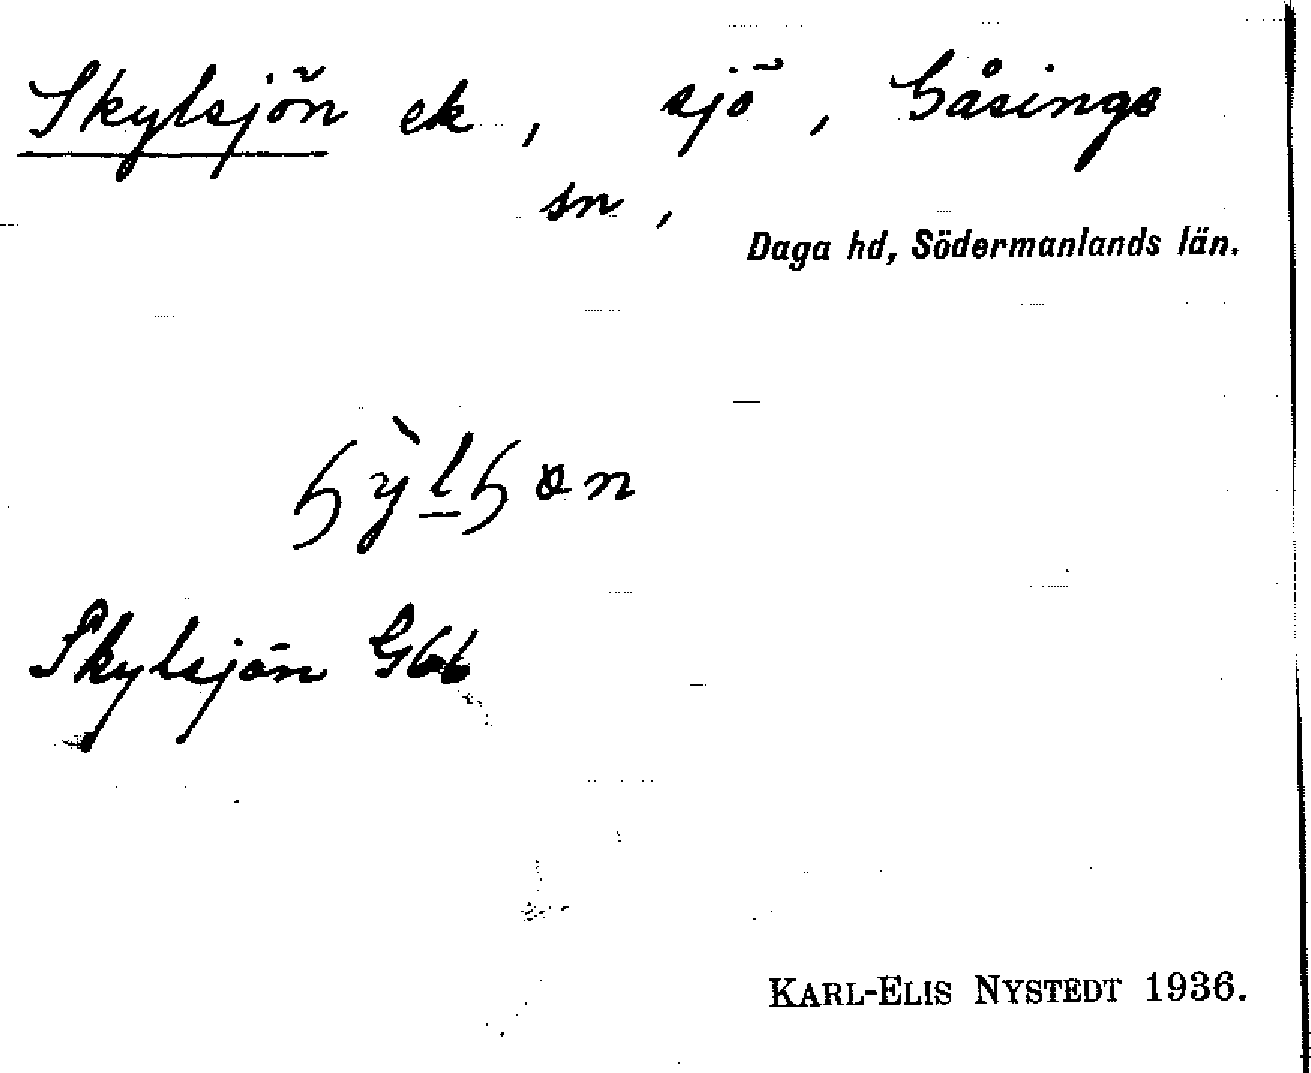 Skylsjön ek, sjö, Gåsinge
sn,
Daga hd, Södermanlands län.
Skylsjön Gkb
KARL-ELIS NYSTEDT 1936.